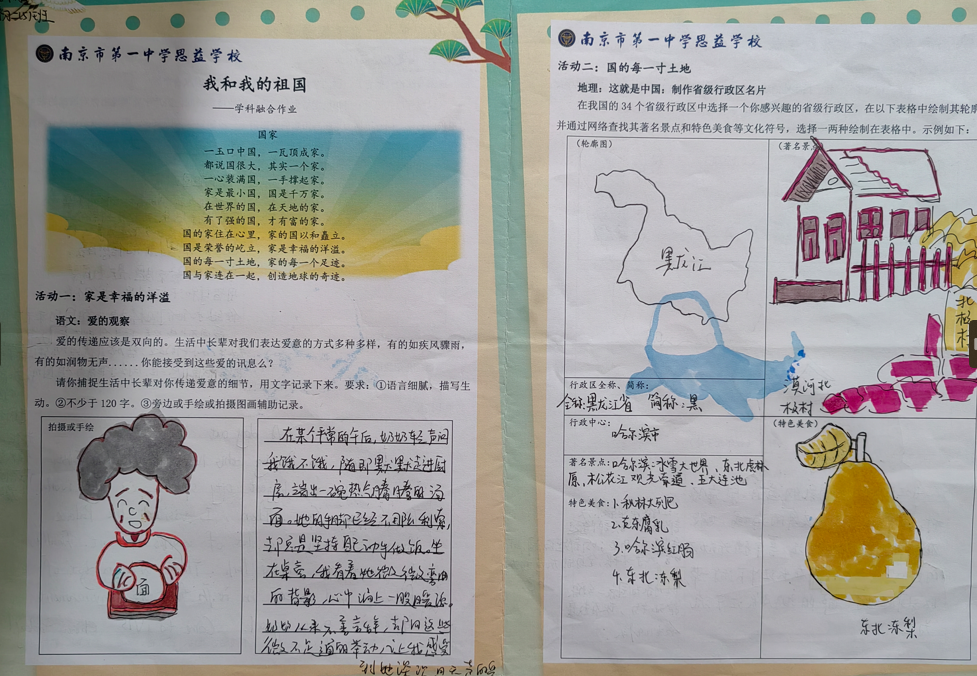 南京市第一中学思益学校
我和我的祖国
——学科融合作业
国家
一玉口中国，一瓦顶成家。
都说国很大，其实一个家。
一心装满国，一手撑起家。
家是最小国，国是千万家。
在世界的国，在天地的家。
有了强的国，才有富的家。
国的家住在心里，家的国以和矗立。
国是荣誉的屹立，家是幸福的洋溢。
国的每一寸土地，家的每一个足迹。
国与家连在一起，创造地球的奇迹。
活动一：家是幸福的洋溢
语文：爱的观察
爱的传递应该是双向的。生活中长辈对我们表达爱意的方式多种多样，有的如疾风骤雨，
有的如润物无声......你能接受到这些爱的讯息么？
请你捕捉生活中长辈对你传递爱意的细节，用文字记录下来。要求：①语言细腻，描写生
动。②不少于120字。③旁边或手绘或拍摄图画辅助记录。
拍摄或手绘
面
在某个平常的午后，奶奶轻声问
我饿不饿，随即默默走进厨
房，端出一碗热气腾腾的汤
面。她的手脚已经不再利索，
却总是坚持自己动手做饭。坐
在桌旁，我看着她微微弯曲
的背影，心中涌上一股暖流。
奶奶从来不善言辞，却用这些
微不足道的举动，让我感受
到她深沉
南京市第一中学思益学校
活动二：国的每一寸土地
地理：这就是中国：制作省级行政区名片
在我国的34个省级行政区中选择一个你感兴趣的省级行政区，在以下表格中绘制其轮廓
并通过网络查找其著名景点和特色美食等文化符号，选择一两种绘制在表格中。示例如下：
（轮廓图）
黑龙江
（著名景点
北极村
漠河北
极村
行政区全称、简称：
全称：黑龙江省 简称：黑
行政中心：
哈尔滨市
著名景点：哈尔滨冰雪大世界、东北虎林
园、松花江观光索道、五大连池
特色美食：1.秋林大列巴
2.克东腐乳
3.哈尔滨红肠
4.东北冻梨
（特色美食）
东北冻梨